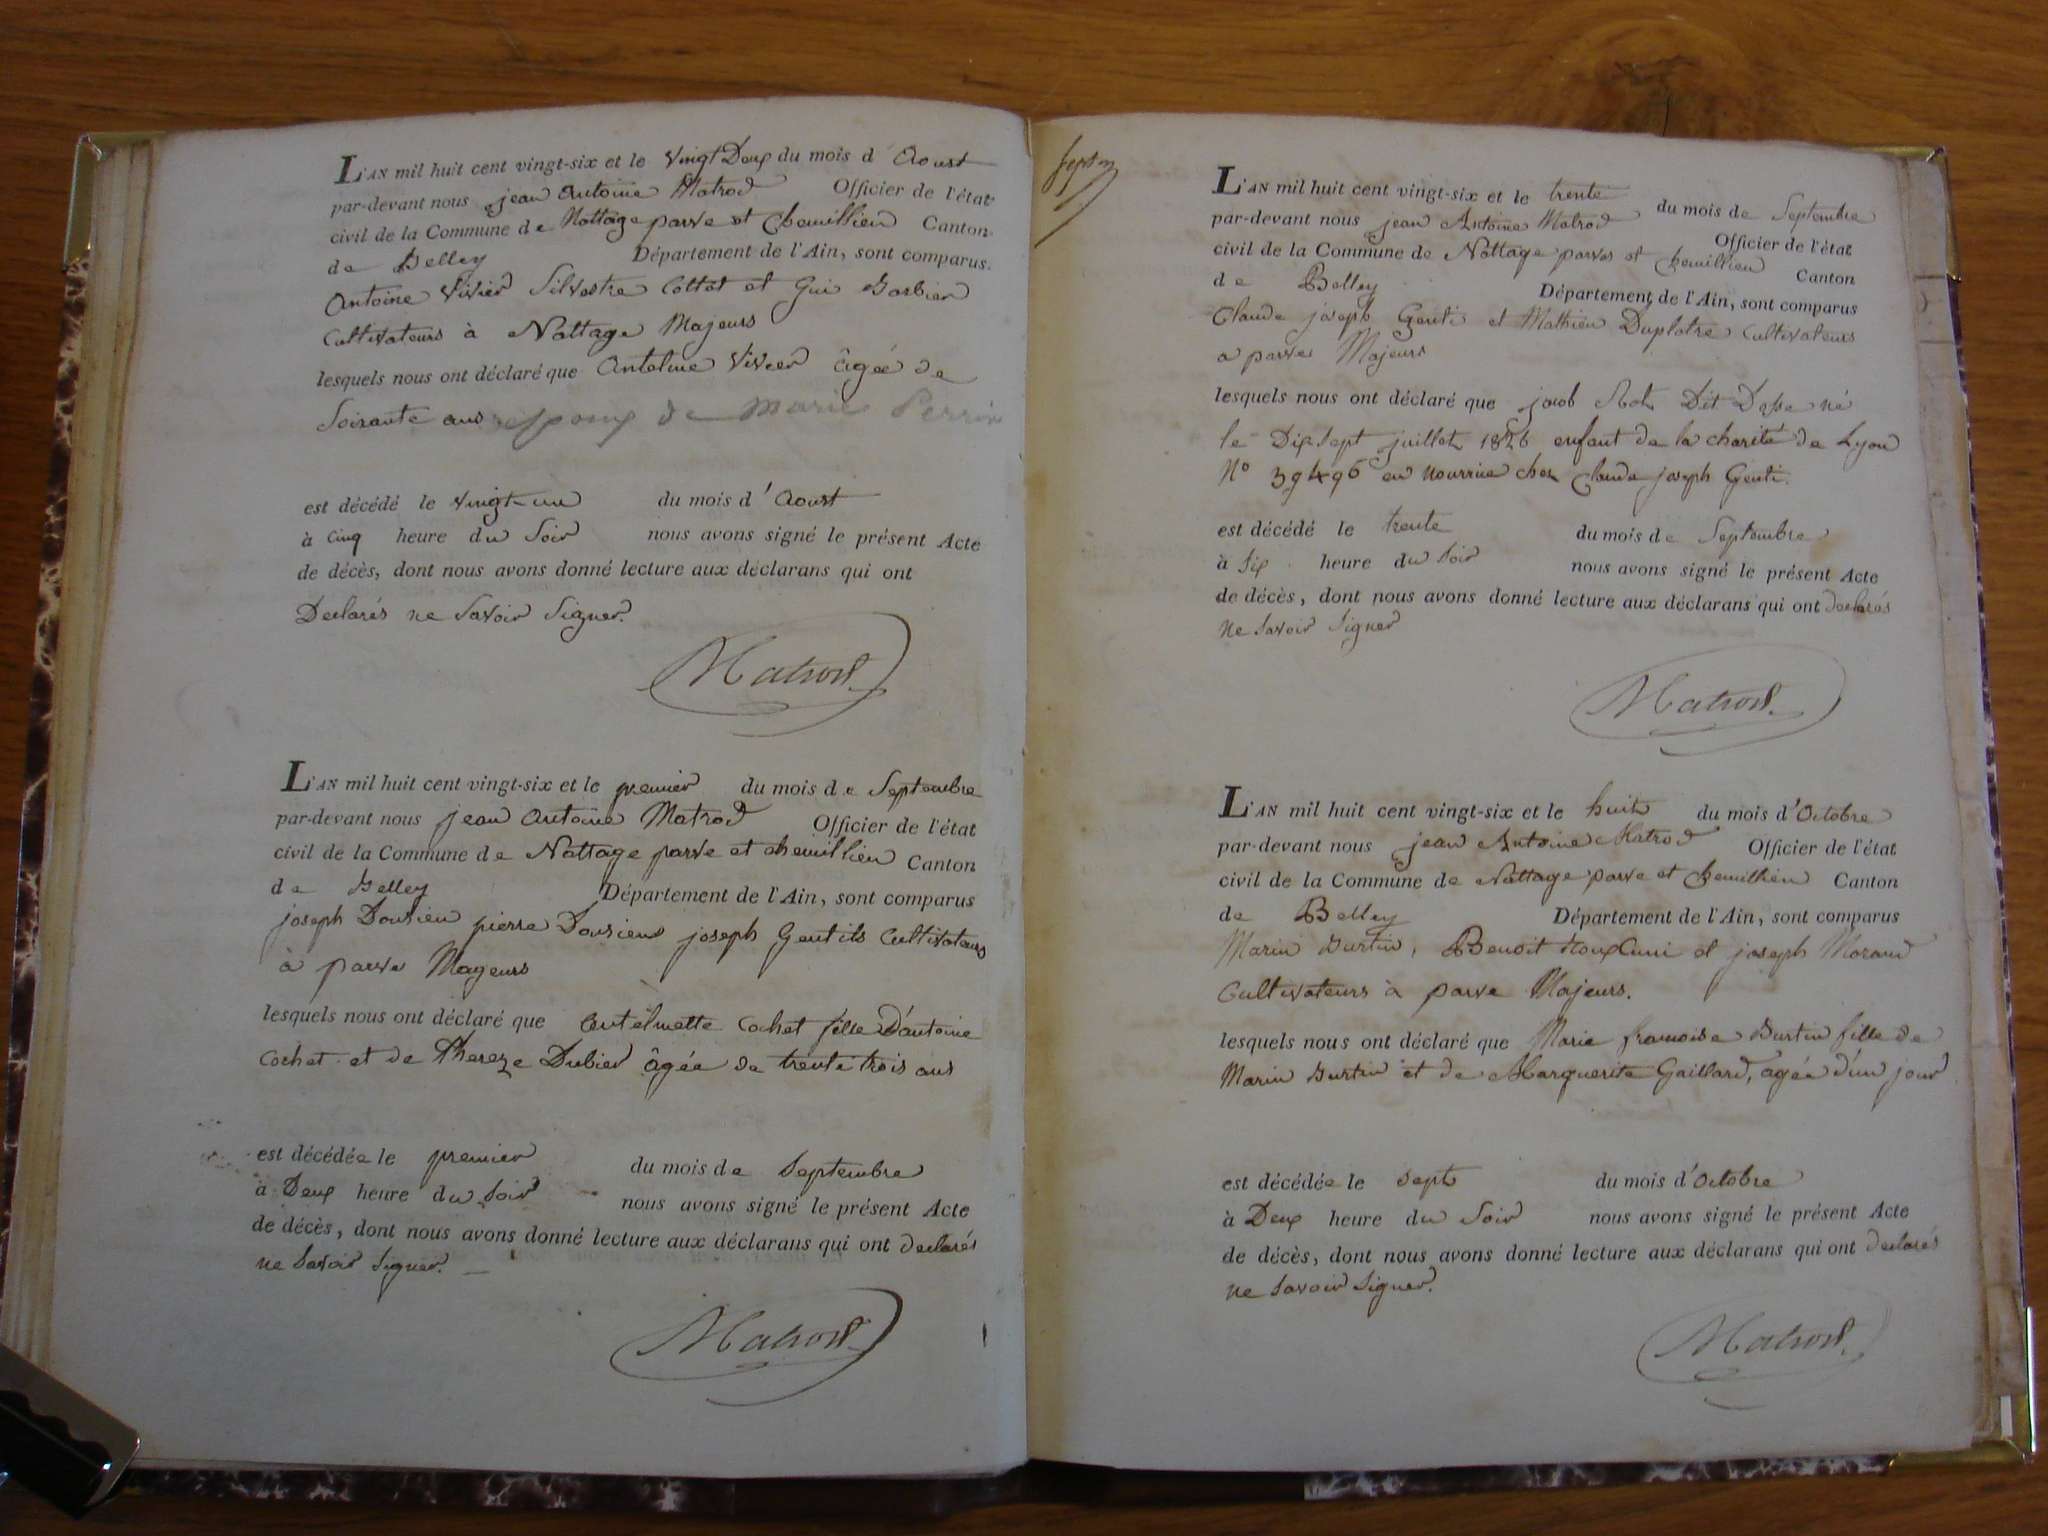 L'AN mil huit cent vingt-six et le vingt Deux du mois d'Aoust
par-devant nous jean antoine Matrod Officier de l'état
civil de la Commune de Nattage parve et Chemillieu Canton
de Belley Département de l'Ain, sont comparus.
Antoine Vivier Silvestre Cottat et Gui Barbier
Cultivateurs à Nattage Majeurs
lesquels nous ont déclaré que Antelme Vivier âgée de
Soixante ans epoux de Marie Perrin
est décédé le vingt-un du mois d'Aoust
à Cinq heure du Soir nous avons signé le présent Acte
de décès, dont nous avons donné lecture aux déclarans qui ont
Declarés ne Savoir Signer.
Matrod
L'AN mil huit cent vingt-six et le premier du mois de Septembre
par-devant nous jean antoine Matrod Officier de l'état
civil de la Commune de Nattage parve et chemillieu Canton
de Belley Département de l'Ain, sont comparus
joseph Dousieu pierre Dousieux joseph Gentils Cultivateurs
à parve Mageurs
lesquels nous ont déclaré que Antelmette Cochet fille D'antoine
Cochet et de Thereze Dubier âgée de trente trois ans
est décédée le premier du mois de Septembre
à Deux heure du Soir nous avons signé le présent Acte
de décès, dont nous avons donné lecture aux déclarans qui ont declarés
ne Savoir Signer.
Matrod
L'AN mil huit cent vingt-six et le trente du mois de Septembre
par-devant nous jean Antoine Matrod Officier de l'état
civil de la Commune de Nattage parves et chemillieu Canton
de Belley Département de l'Ain, sont comparus
Claude joseph Genti et Mathieu Duplatre Cultivateurs
a parves Majeurs
lesquels nous ont déclaré que jacob Dit né
le Dix Sept juillet 1826 enfant de la charité de Lyon
N° 39496 en nourrice chez Claude joseph Genti.
est décédé le trente du mois de Septembre
à Six heure du Soir nous avons signé le présent Acte
de décès, dont nous avons donné lecture aux déclarans qui ont declarés
ne Savoir Signer
Matrod
L'AN mil huit cent vingt-six et le huit du mois d'Octobre
par-devant nous jean Antoine Matrod Officier de l'état
civil de la Commune de Nattage parve et Chemillieu Canton
de Belley Département de l'Ain, sont comparus
Marin Burtin, Benoit et joseph Morand
Cultivateurs à parve Majeurs.
lesquels nous ont déclaré que Marie francoise Burtin fille de
Marin Burtin et de Marguerite Gaillard, agée d'un jour
est décédée le Sept du mois d'Octobre
à Deux heure du Soir nous avons signé le présent Acte
de décès, dont nous avons donné lecture aux déclarans qui ont declarés
ne Savoir Signer.
Matrod